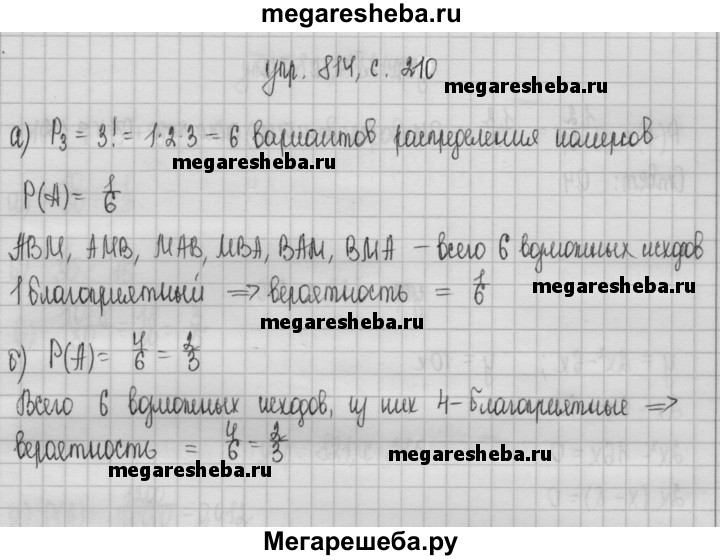 megaresheba.ru
упр. 814, с. 210
megaresheba.ru
а) P₃ = 3! = 1·2·3 = 6 вариантов распределения номеров
megaresheba.ru
P(A) = 1/6
АВМ, АМВ, МАВ, МВА, ВАМ, ВМА – всего 6 возможных исходов
1 благоприятный => вероятность = 1/6
megaresheba.ru
megaresheba.ru
б) P(A) = 4/6 = 2/3
Всего 6 возможных исходов, из них 4 – благоприятные =>
вероятность = 4/6 = 2/3
megaresheba.ru
megaresheba.ru
Мегарешеба.ру